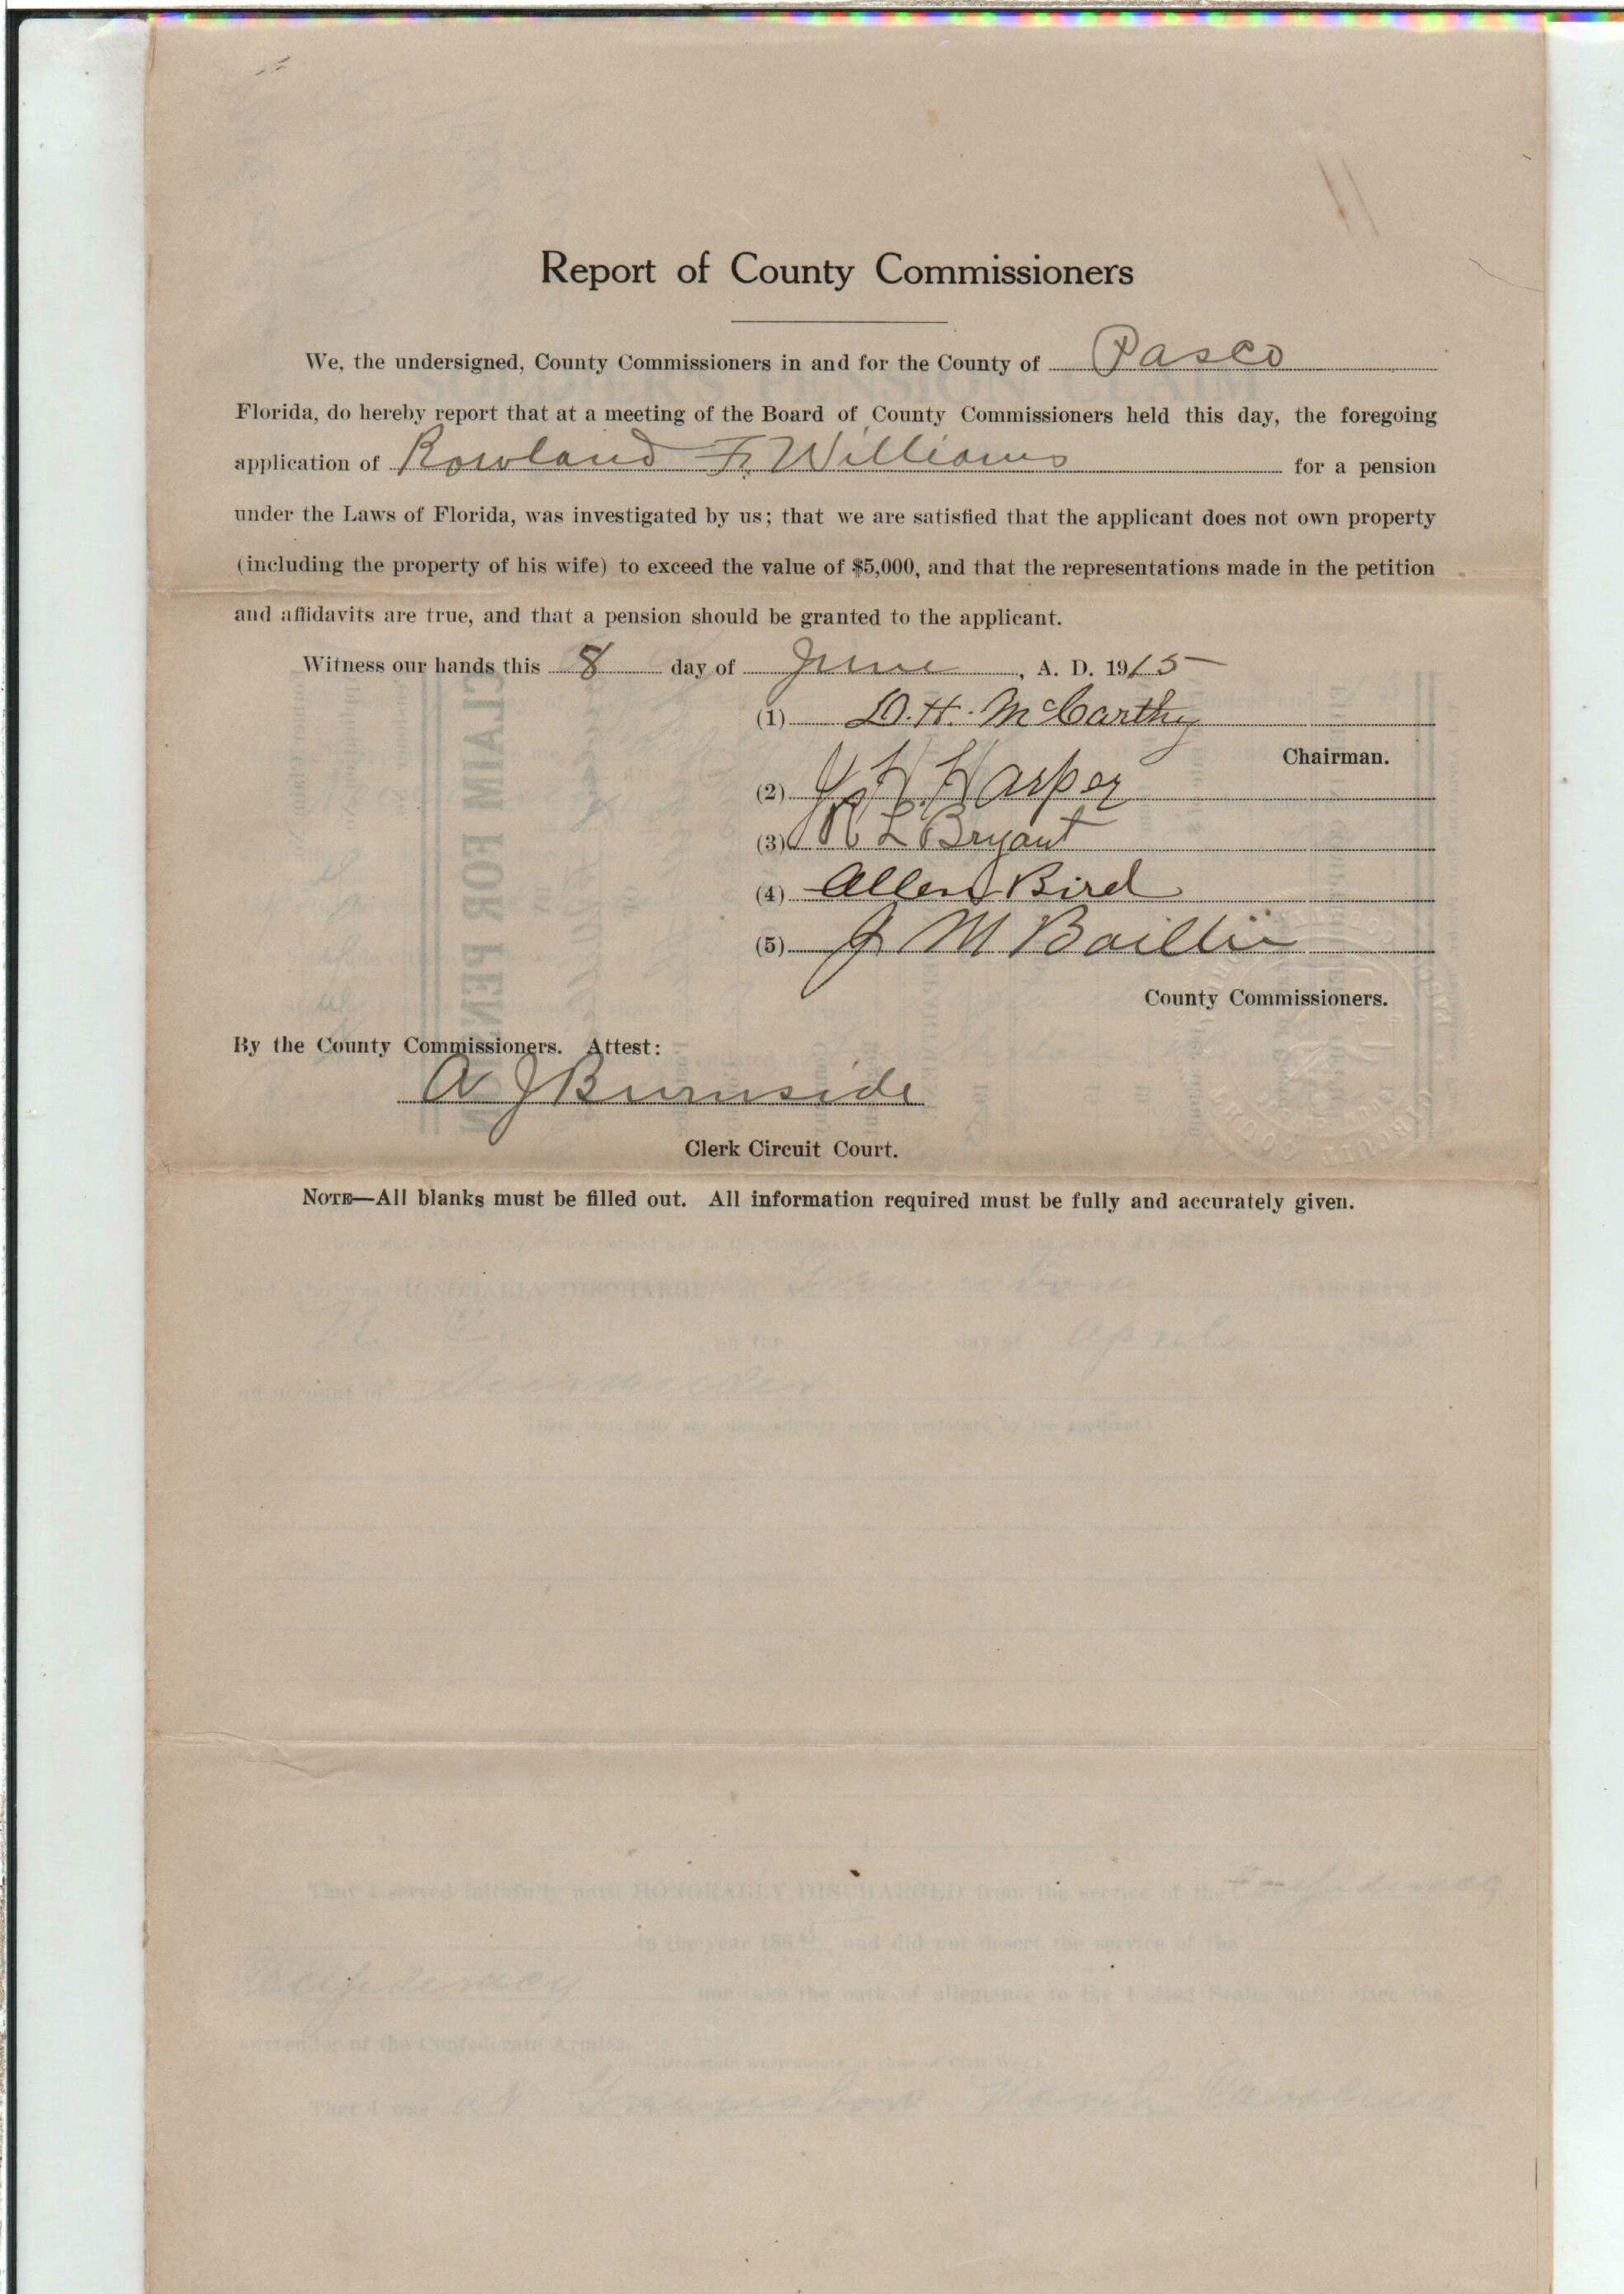 Report of County Commissioners
We, the undersigned, County Commissioners in and for the County of Pasco
Florida, do hereby report that at a meeting of the Board of County Commissioners held this day, the foregoing
application of Rowland F. Williams for a pension
under the Laws of Florida, was investigated by us; that we are satisfied that the applicant does not own property
(including the property of his wife) to exceed the value of $5,000, and that the representations made in the petition
and affidavits are true, and that a pension should be granted to the applicant.
Witness our hands this 8 day of June, A. D. 1915
(1) D. H. McCarthy
Chairman.
(2) Harper
(3) L Bryant
(4) Allen Bird
(5) J M Baillie
County Commissioners.
By the County Commissioners. Attest:
A J Burnside
Clerk Circuit Court.
NOTE—All blanks must be filled out. All information required must be fully and accurately given.